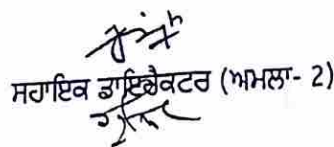 ਸਹਾਇਕ ਡਾਇਰੈਕਟਰ (ਅਮਲਾ- 2)